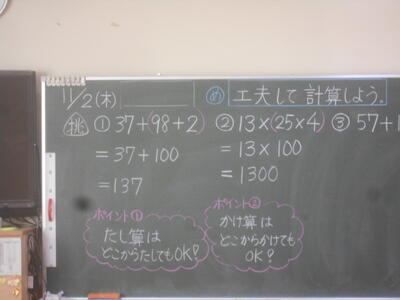 11/2(木)
め 工夫して計算しよう。
挑 ① 37+(98+2)
=37+100
=137
② 13×(25×4)
=13×100
=1300
③ 57+1
ポイント①
たし算は
どこからたしてもOK!
ポイント②
かけ算は
どこからかけても
OK!